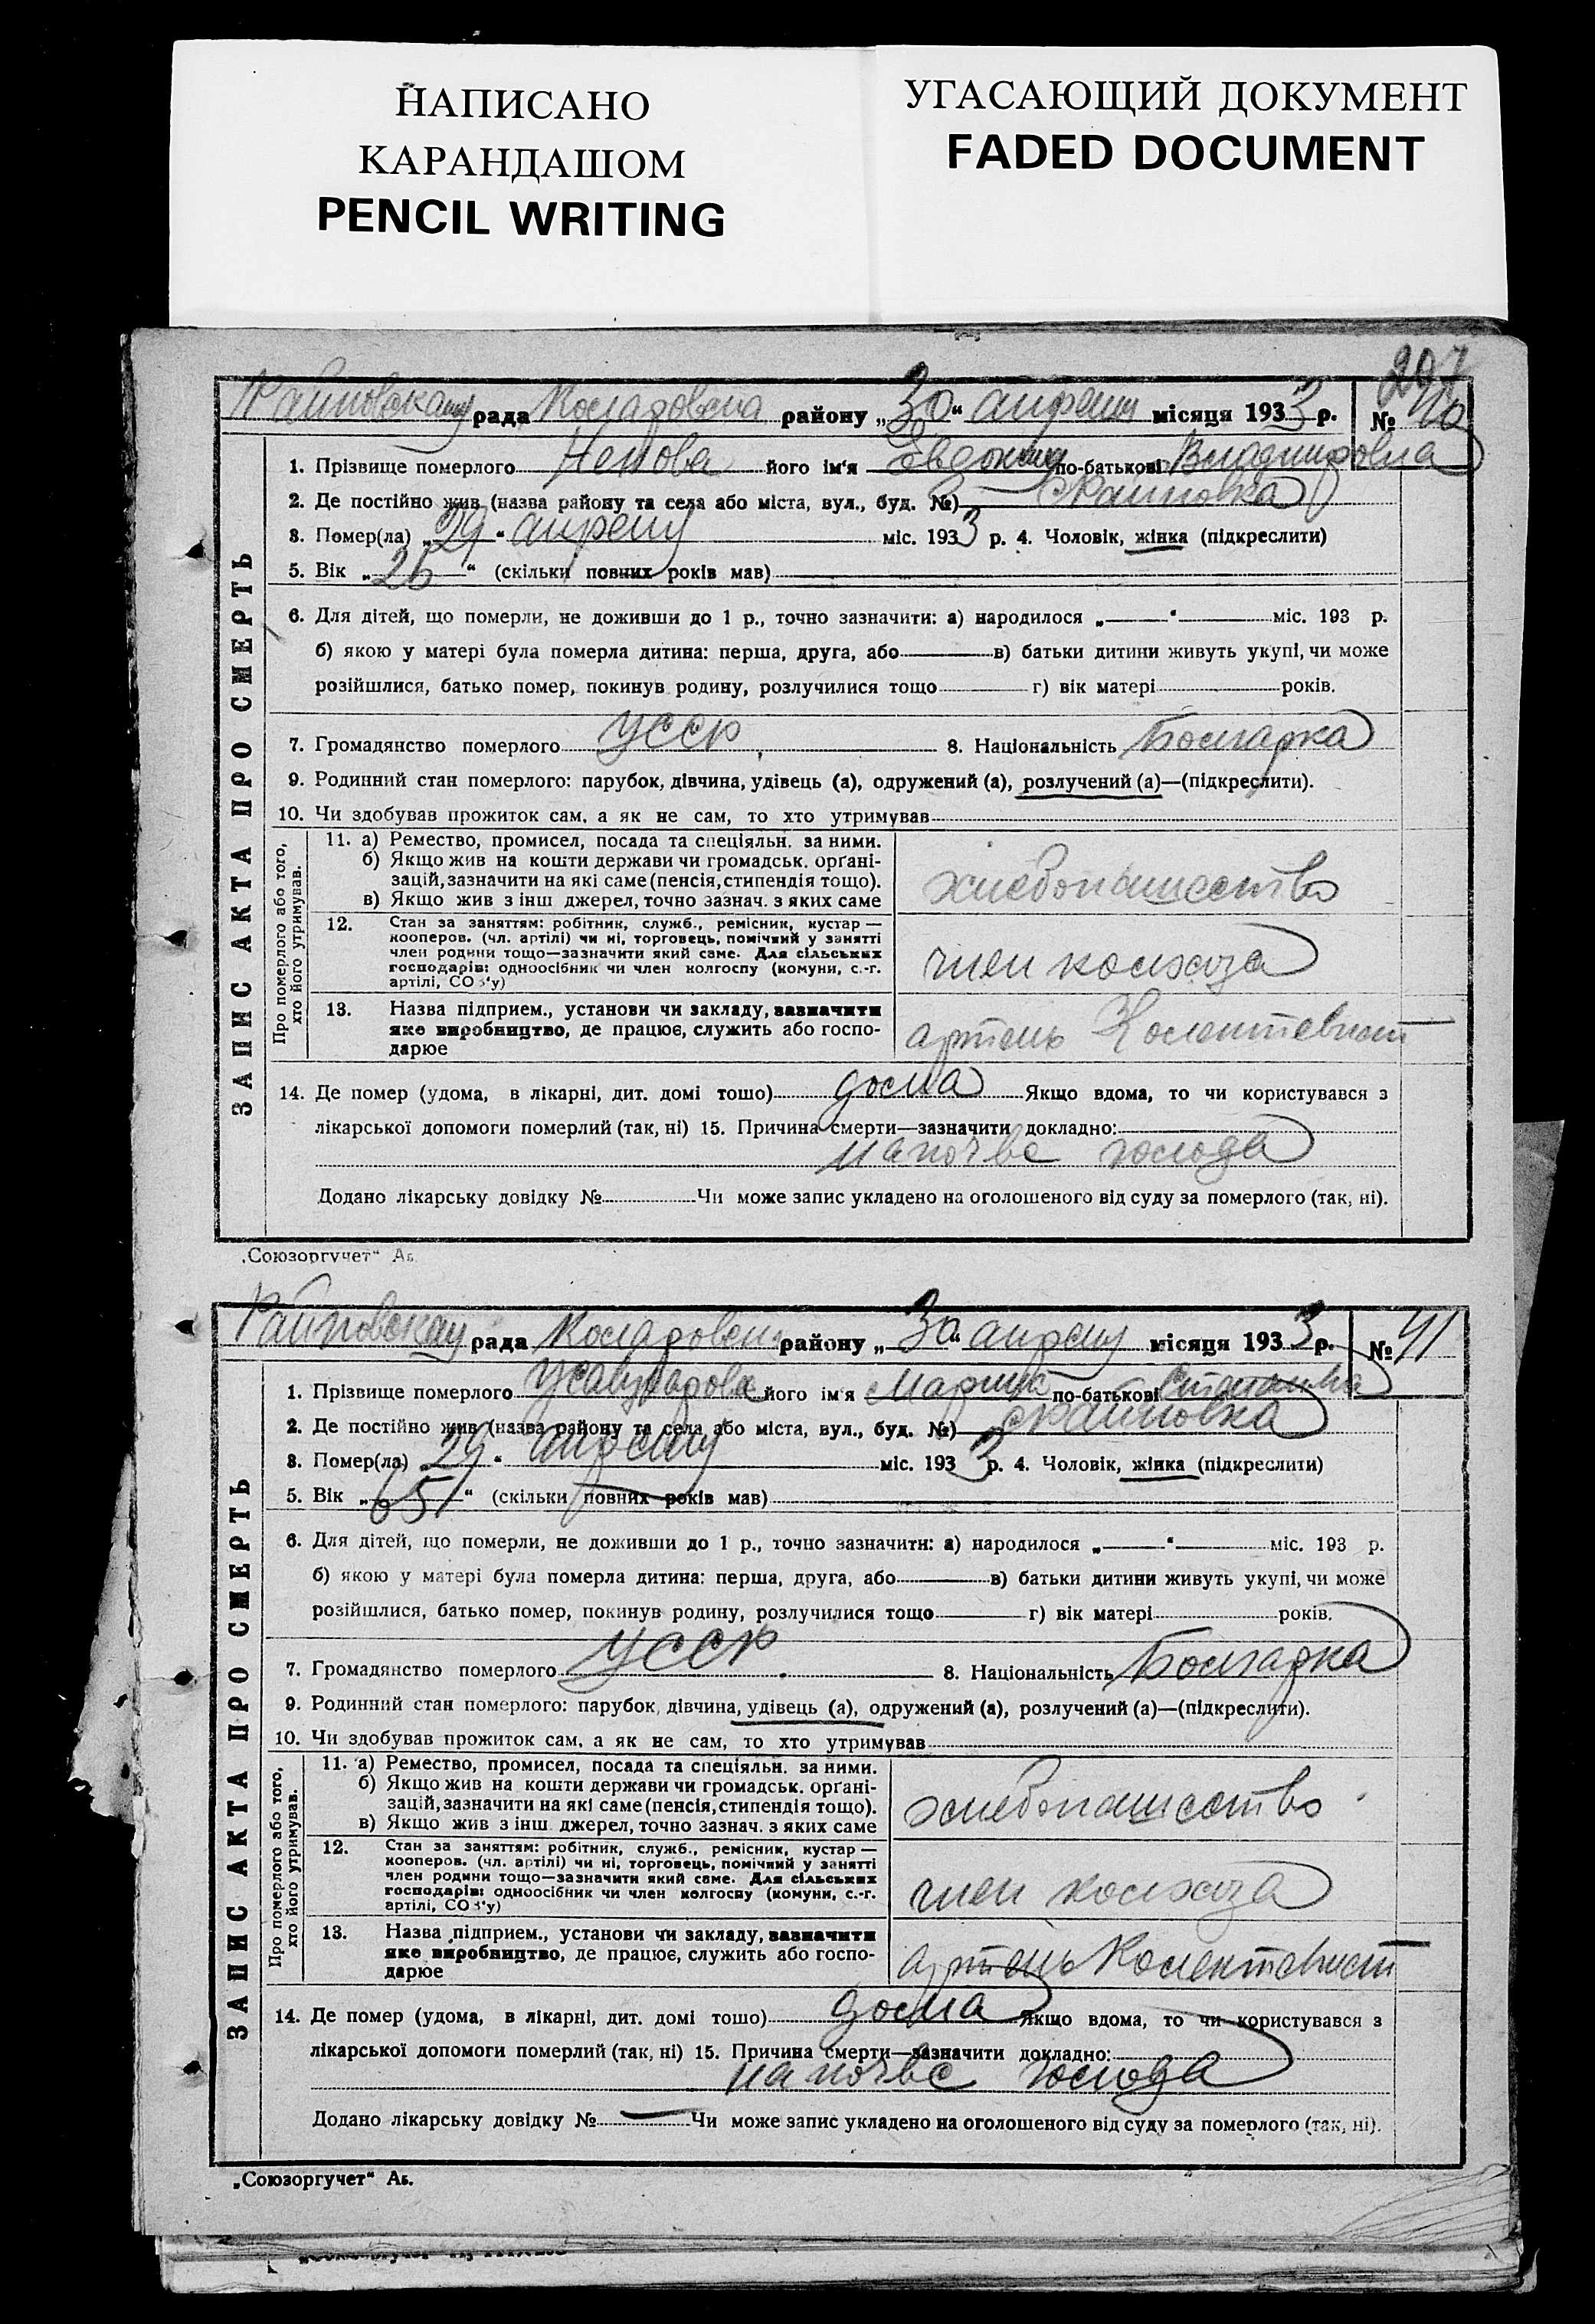 НАПИСАНО
КАРАНДАШОМ
PENCIL WRITING
УГАСАЮЩИЙ ДОКУМЕНТ
FADED DOCUMENT
207
Райновская рада Коларовского району „30“ апреля місяця 1933 р. № 40
ЗАПИС АКТА ПРО СМЕРТЬ
1. Прізвище померлого Ненова його ім'я Евдокия по-батькові Владимировна
2. Де постійно жив (назва району та села або міста, вул., буд. №) с Райновка
3. Помер(ла) „29“ апреля міс. 1933 р. 4. Чоловік, жінка (підкреслити)
5. Вік „25“ (скільки повних років мав)
6. Для дітей, що померли, не доживши до 1 р., точно зазначити: а) народилося „—“ міс. 193 р.
б) якою у матері була померла дитина: перша, друга, або в) батьки дитини живуть укупі, чи може
розійшлися, батько помер, покинув родину, розлучилися тощо г) вік матері років.
7. Громадянство померлого УССР 8. Національність Болгарка
9. Родинний стан померлого: парубок, дівчина, удівець (а), одружений (а), розлучений (а)—(підкреслити).
10. Чи здобував прожиток сам, а як не сам, то хто утримував
Про померлого або того, хто його утримував.
11. а) Ремество, промисел, посада та спеціяльн. за ними.
б) Якщо жив на кошти держави чи громадськ. орґані-
зацій, зазначити на які саме (пенсія, стипендія тощо).
в) Якщо жив з інш джерел, точно зазнач. з яких саме
хлебопашество
12. Стан за заняттям: робітник, служб., ремісник, кустар —
кооперов. (чл. артілі) чи ні, торговець, помічний у занятті
член родини тощо—зазначити який саме. Для сільських
господарів: одноосібник чи член колгоспу (комуни, с.-г.
артілі, СОЗ'у)
член колхоза
13. Назва підприєм., установи чи закладу, зазначити
яке виробництво, де працює, служить або госпо-
дарює
артель Колективист
14. Де помер (удома, в лікарні, дит. домі тошо) дома Якщо вдома, то чи користувався з
лікарської допомоги померлий (так, ні) 15. Причина смерти—зазначити докладно:
на почве голода
Додано лікарську довідку № Чи може запис укладено на оголошеного від суду за померлого (так, ні).
„Союзоргучет“
Райновская рада Коларовского району „30“ апреля місяця 1933 р. № 41
ЗАПИС АКТА ПРО СМЕРТЬ
1. Прізвище померлого його ім'я Мария по-батькові
2. Де постійно жив (назва району та села або міста, вул., буд. №) с Райновка
3. Помер(ла) „29“ апреля міс. 1933 р. 4. Чоловік, жінка (підкреслити)
5. Вік „65“ (скільки повних років мав)
6. Для дітей, що померли, не доживши до 1 р., точно зазначити: а) народилося „—“ міс. 193 р.
б) якою у матері була померла дитина: перша, друга, або в) батьки дитини живуть укупі, чи може
розійшлися, батько помер, покинув родину, розлучилися тощо г) вік матері років.
7. Громадянство померлого УССР 8. Національність Болгарка
9. Родинний стан померлого: парубок, дівчина, удівець (а), одружений (а), розлучений (а)—(підкреслити).
10. Чи здобував прожиток сам, а як не сам, то хто утримував
Про померлого або того, хто його утримував.
11. а) Ремество, промисел, посада та спеціяльн. за ними.
б) Якщо жив на кошти держави чи громадськ. орґані-
зацій, зазначити на які саме (пенсія, стипендія тощо).
в) Якщо жив з інш джерел, точно зазнач. з яких саме
хлебопашество
12. Стан за заняттям: робітник, служб., ремісник, кустар —
кооперов. (чл. артілі) чи ні, торговець, помічний у занятті
член родини тощо—зазначити який саме. Для сільських
господарів: одноосібник чи член колгоспу (комуни, с.-г.
артілі, СОЗ'у)
член колхоза
13. Назва підприєм., установи чи закладу, зазначити
яке виробництво, де працює, служить або госпо-
дарює
артель Колективист
14. Де помер (удома, в лікарні, дит. домі тошо) дома Якщо вдома, то чи користувався з
лікарської допомоги померлий (так, ні) 15. Причина смерти—зазначити докладно:
на почве голода
Додано лікарську довідку № — Чи може запис укладено на оголошеного від суду за померлого (так, ні).
„Союзоргучет“